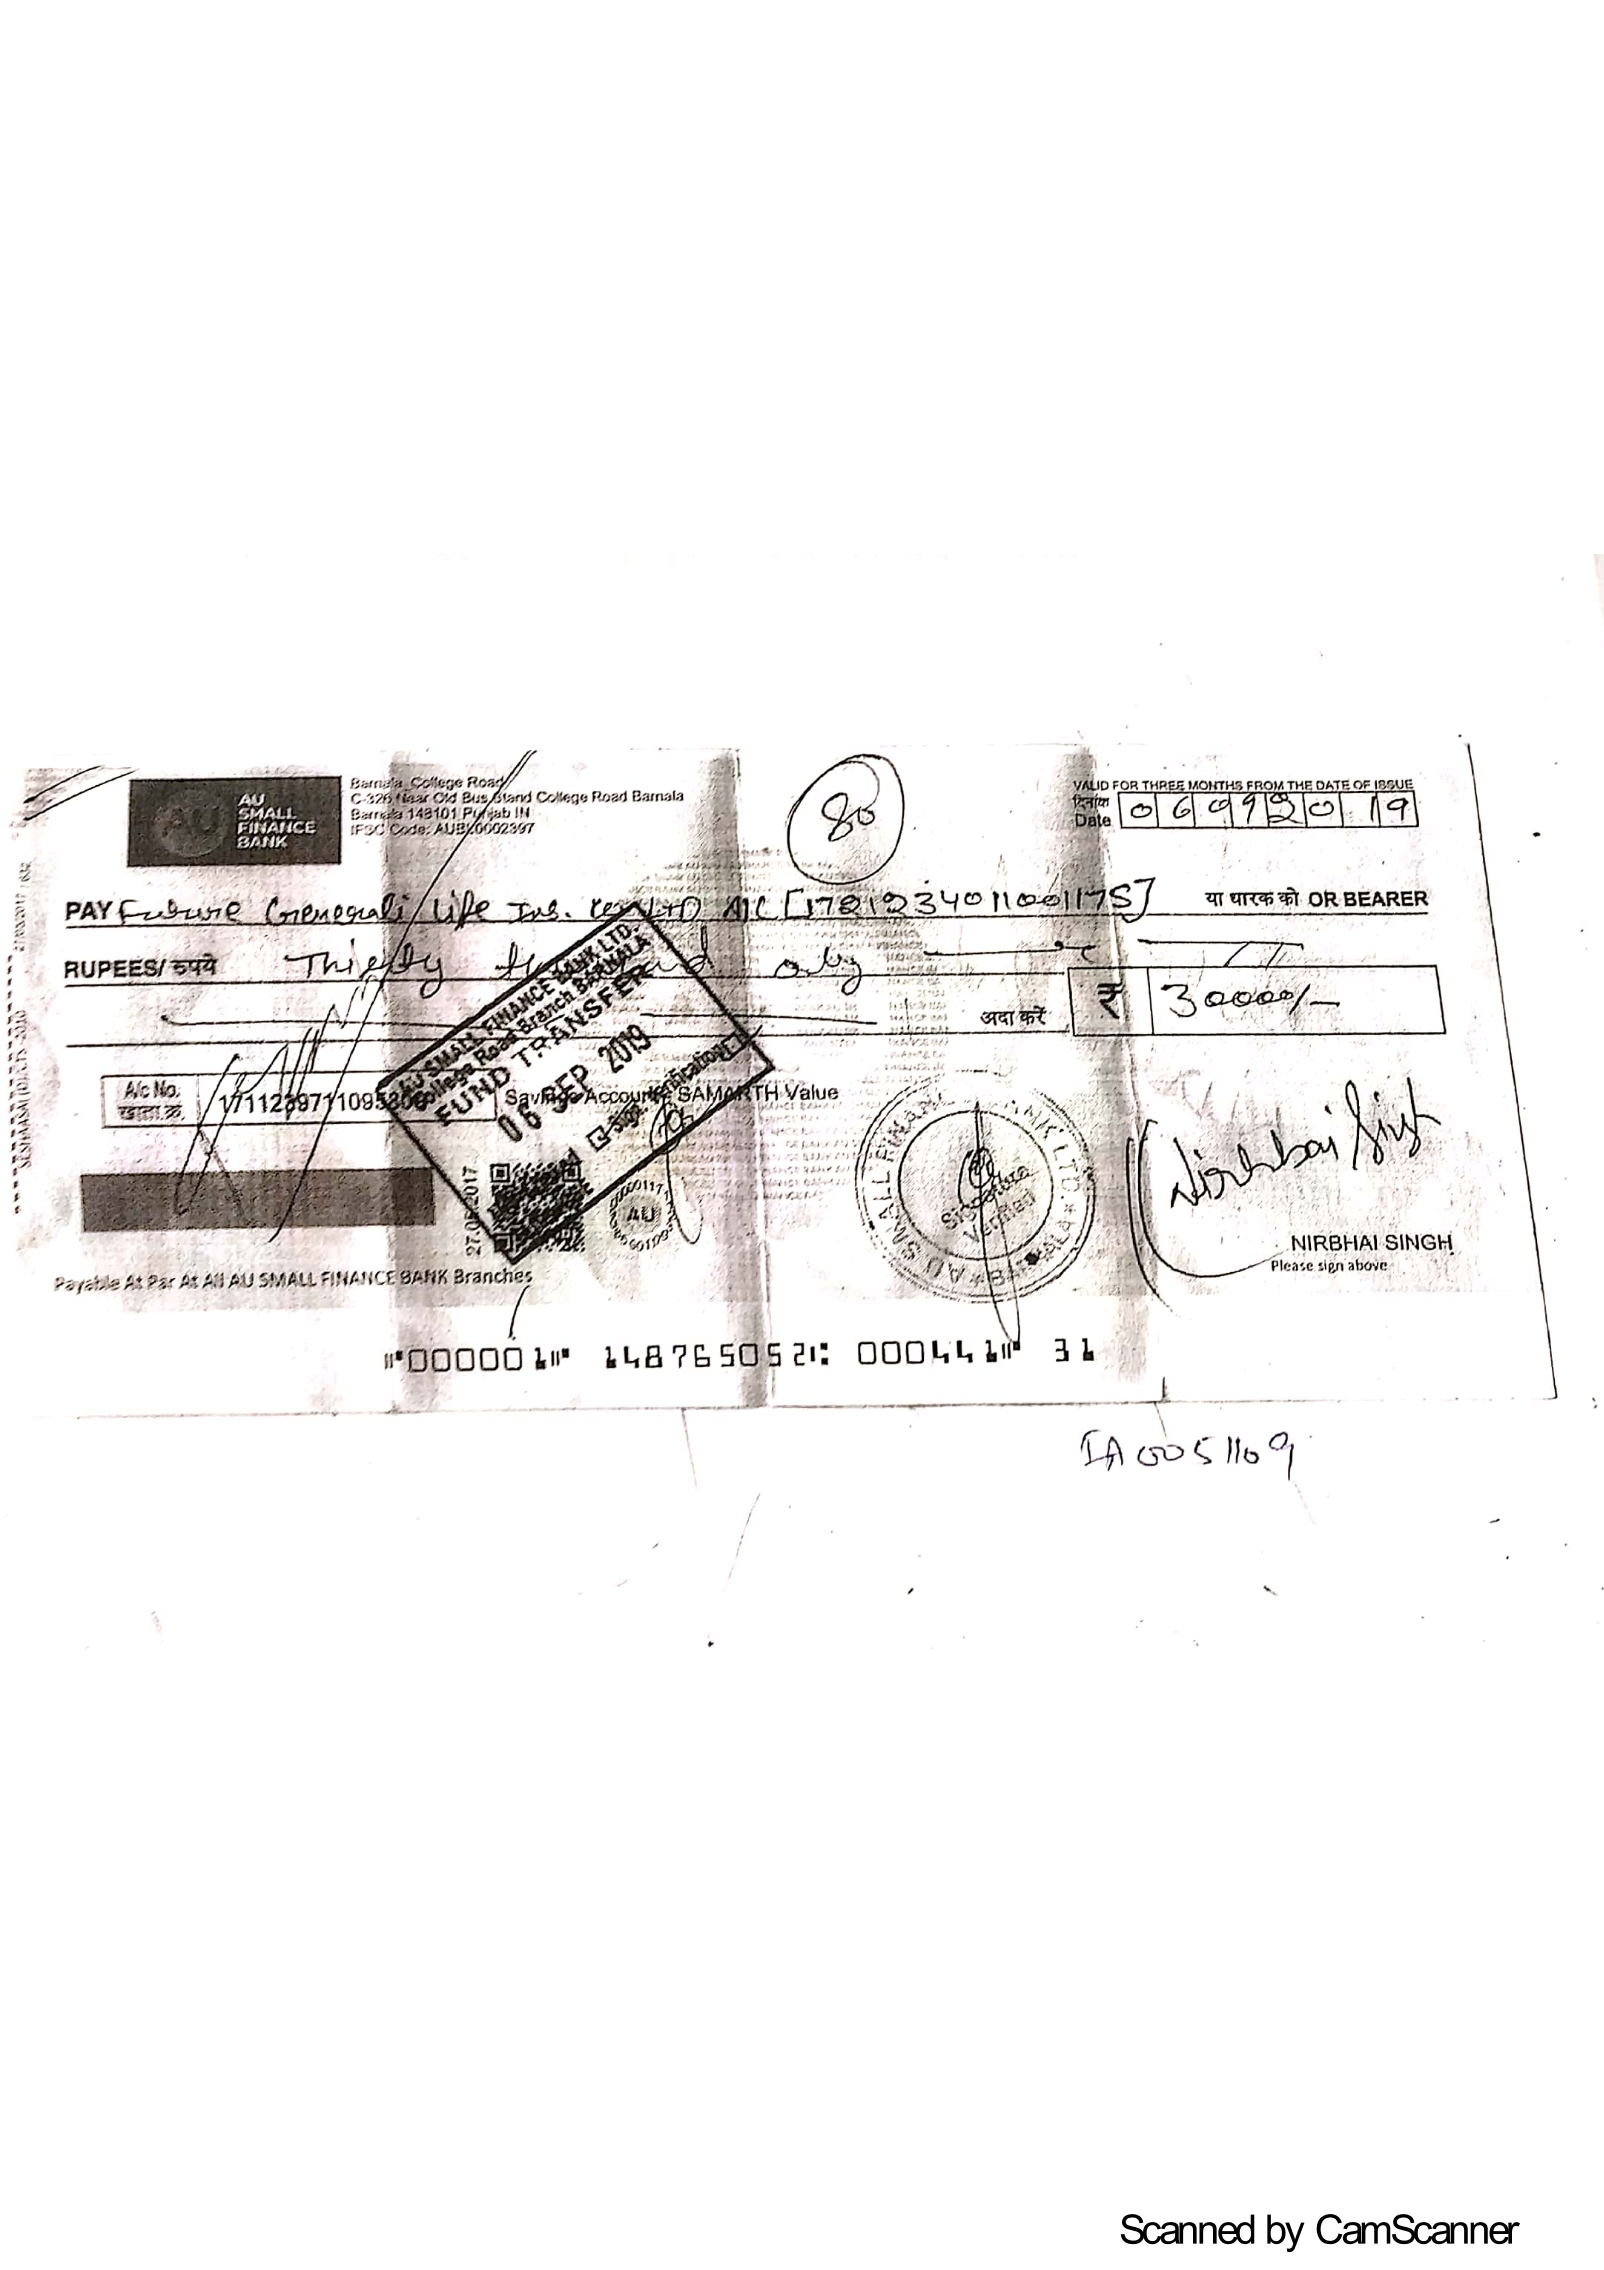 AU
SMALL
FINANCE
BANK
Barnala College Road
C-326 Near Old Bus Stand College Road Barnala
Barnala 148101 Punjab IN
IFSC Code: AUBL0002397
80
VALID FOR THREE MONTHS FROM THE DATE OF ISSUE
दिनांक
Date 06092019
PAY Future Generali Life Ins. LTD A/C [1721234011001175] या धारक को OR BEARER
RUPEES/ रुपये Thirty thousand only
अदा करें ₹ 30000/-
AU SMALL FINANCE BANK LTD.
College Road Branch BARNALA
FUND TRANSFER
06 SEP 2019
A/c No.
खाता क्र.
Savings Account - SAMARTH Value
AU SMALL FINANCE BANK LTD. * BARNALA *
Signature
Verified
Nirbhai Singh
AU
NIRBHAI SINGH
Please sign above
Payable At Par At All AU SMALL FINANCE BANK Branches
⑈000001⑈ 148765052⑆ 000441⑈ 31
IA0051109
Scanned by CamScanner